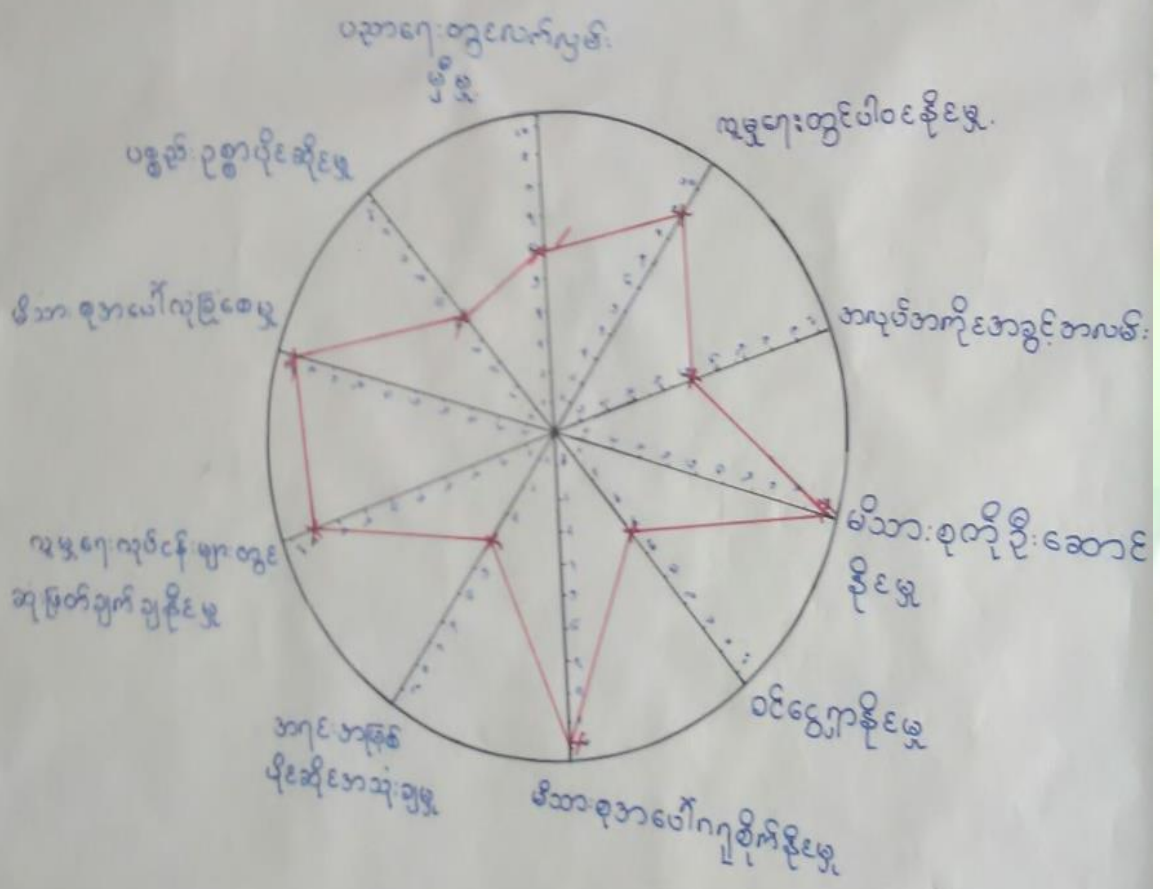 ပညာရေးတွင်လက်လှမ်း
မှီမှု
လူမှုရေးတွင်ပါဝင်နိုင်မှု
အလုပ်အကိုင်အခွင့်အလမ်း
မိသားစုကိုဦးဆောင်
နိုင်မှု
ဝင်ငွေရှာနိုင်မှု
မိသားစုအပေါ်ဂရုစိုက်နိုင်မှု
အရင်းအမြစ်
ပိုင်ဆိုင်အသုံးချမှု
လူမှုရေးလုပ်ငန်းများတွင်
ဆုံးဖြတ်ချက်ချနိုင်မှု
မိသားစုအပေါ်လုံခြုံစေမှု
ပစ္စည်းဥစ္စာပိုင်ဆိုင်မှု